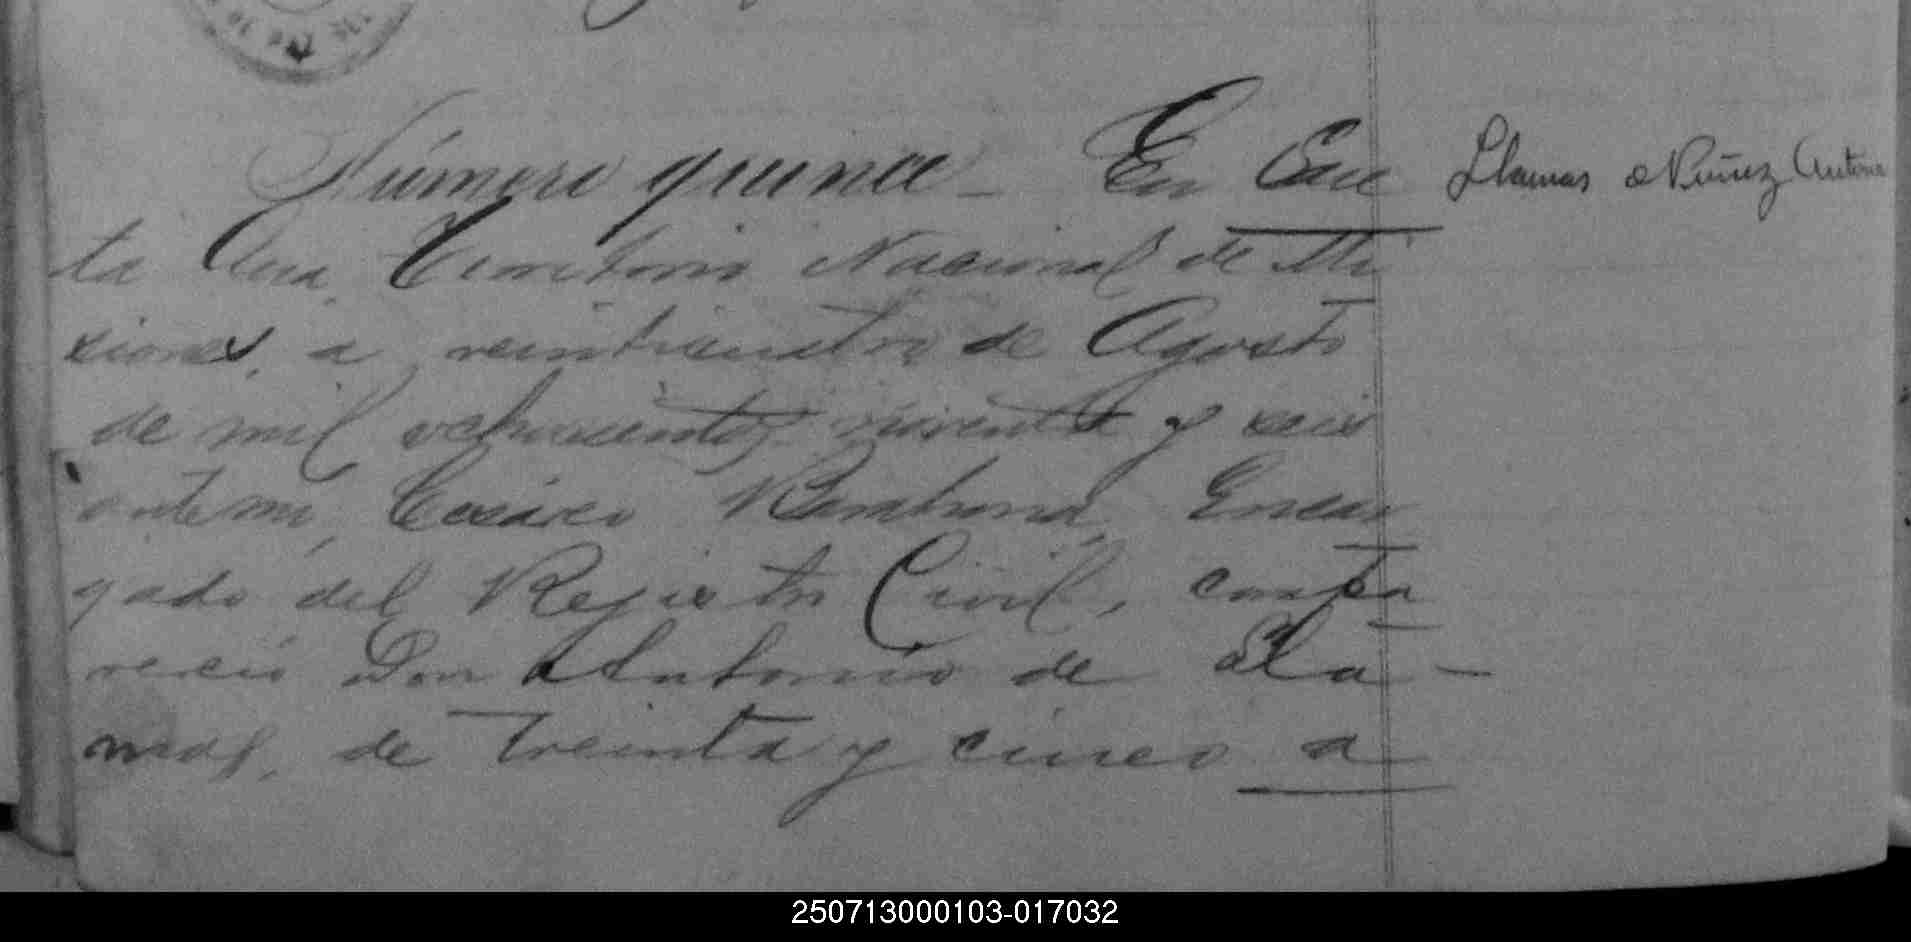 Número quince - En San
ta Ana, Territorio Nacional de Mi
siones, a veinticuatro de Agosto
de mil ochocientos noventa y seis
ante mi, Cesáreo Encar
gado del Registro Civil, compa
reció Don Antonio de Lla-
mas, de treinta y cinco a
Llamas o Nuñez Antonio
250713000103-017032